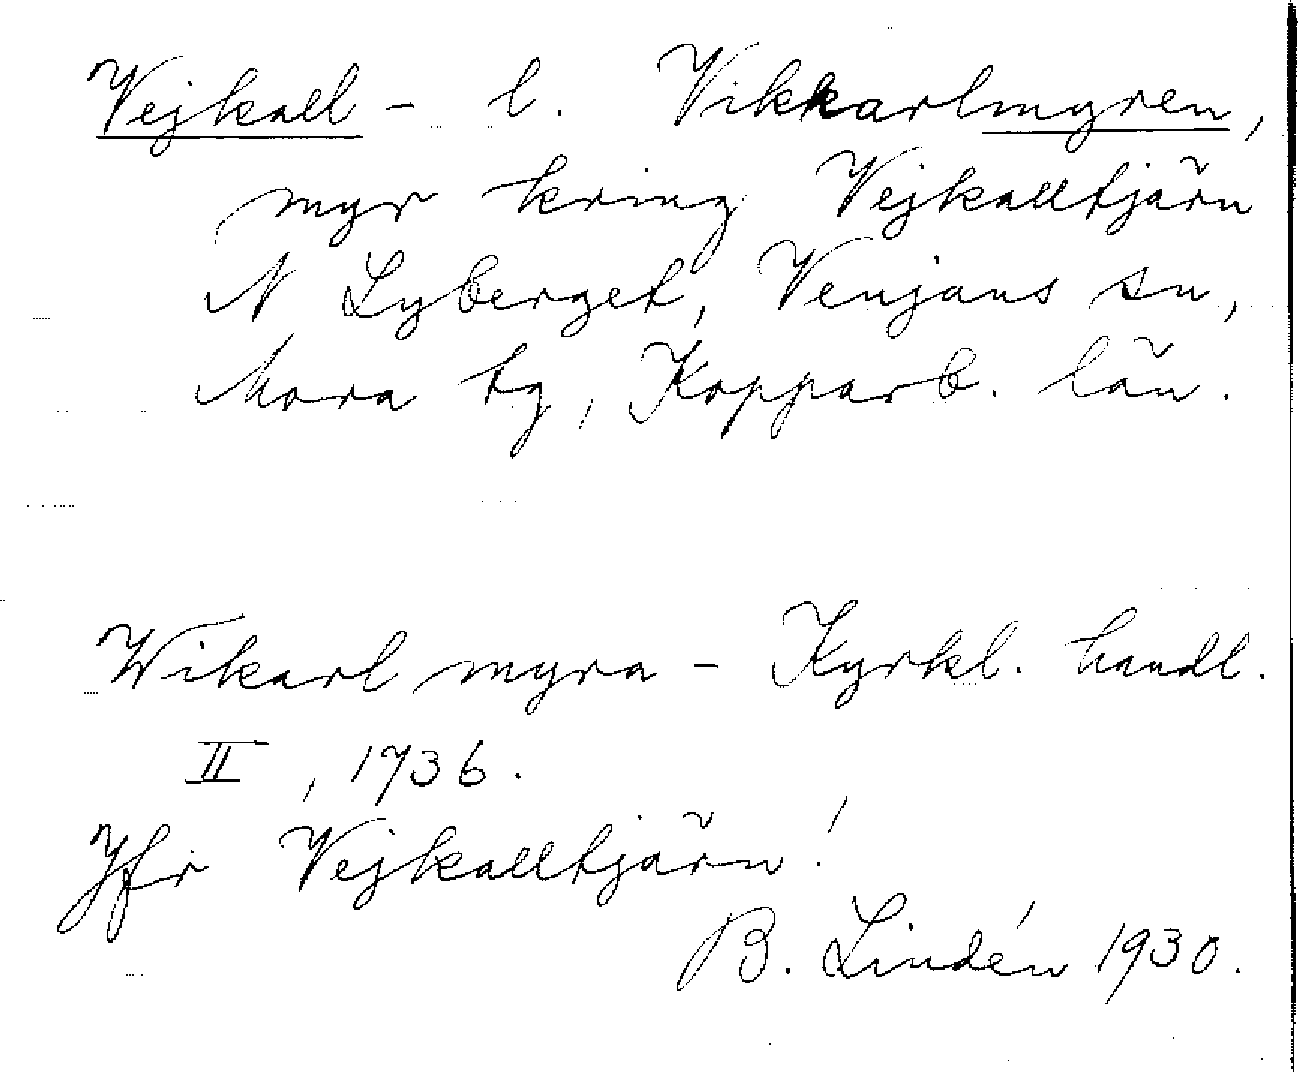 Vejkall- l. Vikkarlmyren,
myr kring Vejkalltjärn
N Lyberget, Venjans sn,
Mora tg, Kopparb. län.
Wikarl myra - Kyrkl. handl.
II, 1736.
Jfr Vejkalltjärn!
B. Lindén 1930.